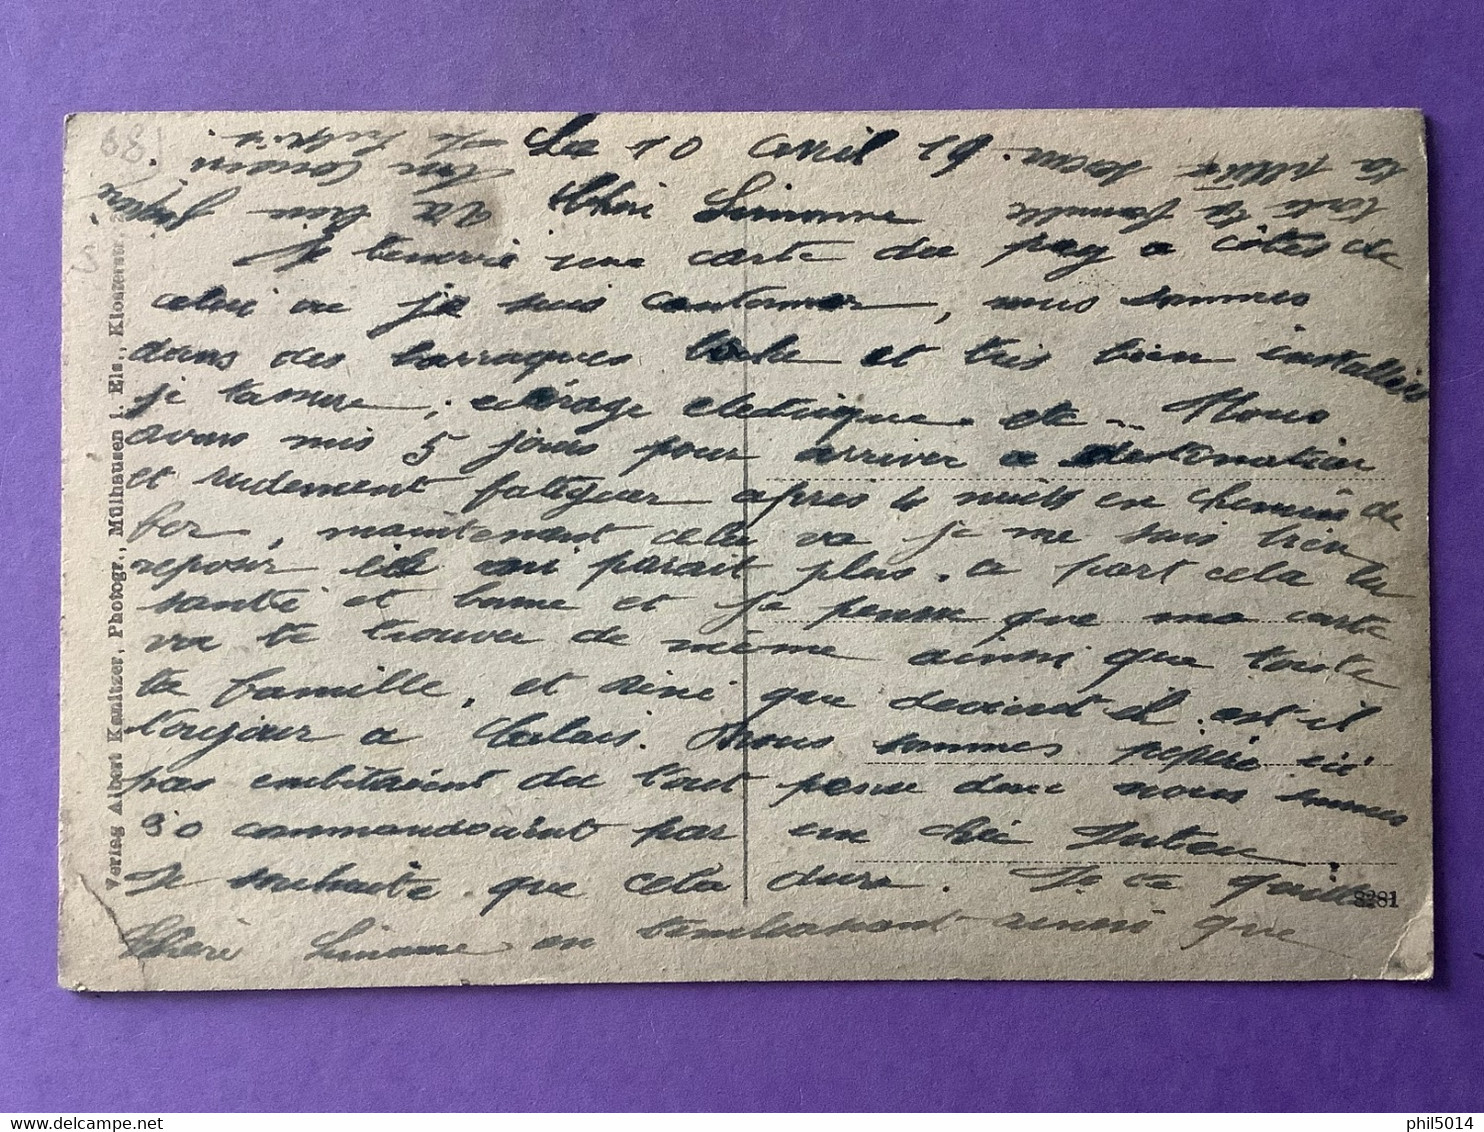 Le 10 avril 19.
Chère Simonne
Je t'envoie une carte du pay a côtes de
celui ou je suis cantonner, nous sommes
dans des barraques boche et très bien installers
éclérage electrique etc... Nous
avons mis 5 jours pour arriver a destination
et rudement fatiguer apres 4 nuits en chemins de
fer, maintenant cela va je me suis bien
reposer et parait plus. a part cela la
santé et bonne et je pense que ma carte
va te trouver de même ainsi que toute
ta famille, et Réné que devient-il est-il
toujour a Calais. Nous sommes pépère ici
pas embêtaient du tout pense donc nous sommes
30 commandaient par un
Je souhaite que cela dure. Je te quitte
Chère Simonne en t'embrassant ainsi que
toute ta famille
ton cousin
va bien
Verlag Albert Kanitzer, Photogr., Mülhausen i. Els., Klosterstr.
8281
68
phil5014